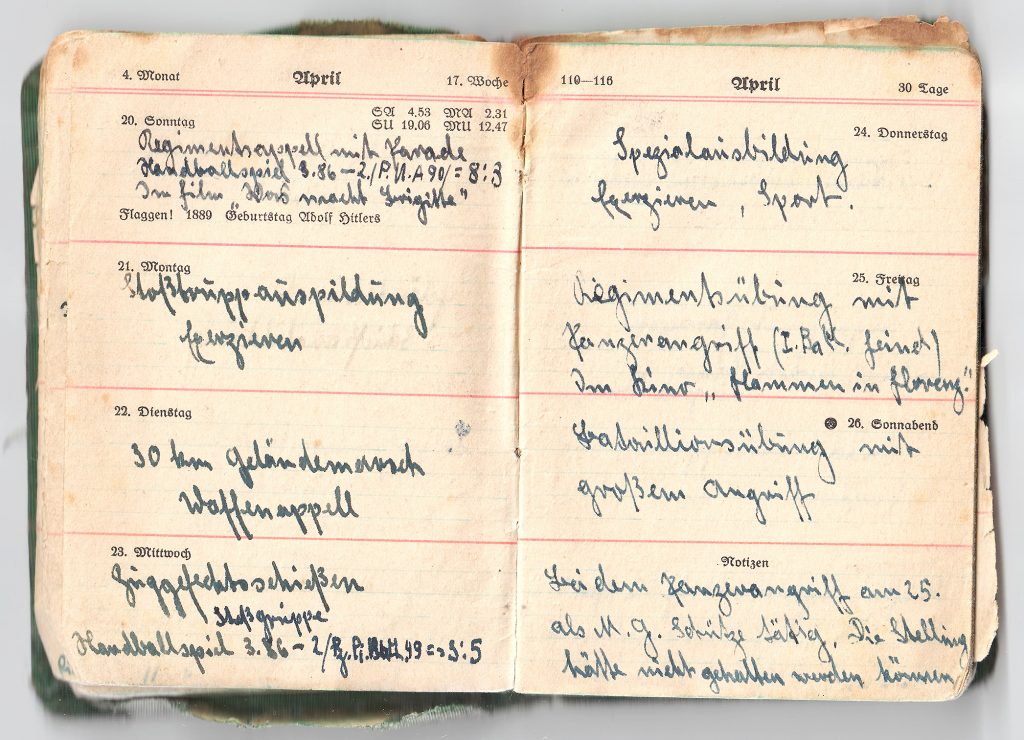 4. Monat April 17. Woche
20. Sonntag
SA 4.53 MA 2.31
SU 19.06 MU 12.47
Regimentsappell mit Parade
Handballspiel 3.86 – 2./P.J.A 90/ = 8:3
Im Film „Was macht Brigitte"
Flaggen! 1889 Geburtstag Adolf Hitlers
21. Montag
Stoßtruppauspildung
Exerzieren
22. Dienstag
30 km Geländemarsch
Waffenappell
23. Mittwoch
Zuggefechtsschießen
Stoßgruppe
Handballspiel 3.86 – 2/Pz.Pi. 49 = 5:5
110—116 April 30 Tage
24. Donnerstag
Spezialausbildung
Exerzieren, Sport.
25. Freitag
Regimentsübung mit
Panzerangriff (I. Batt. Feind)
Im Kino „Flammen in Florenz."
26. Sonnabend
Bataillionsübung mit
großem Angriff
Notizen
Bei dem Panzerangriff am 25.
als M. G. Schütze tätig. Die Stelling
hätte nicht gehalten werden können